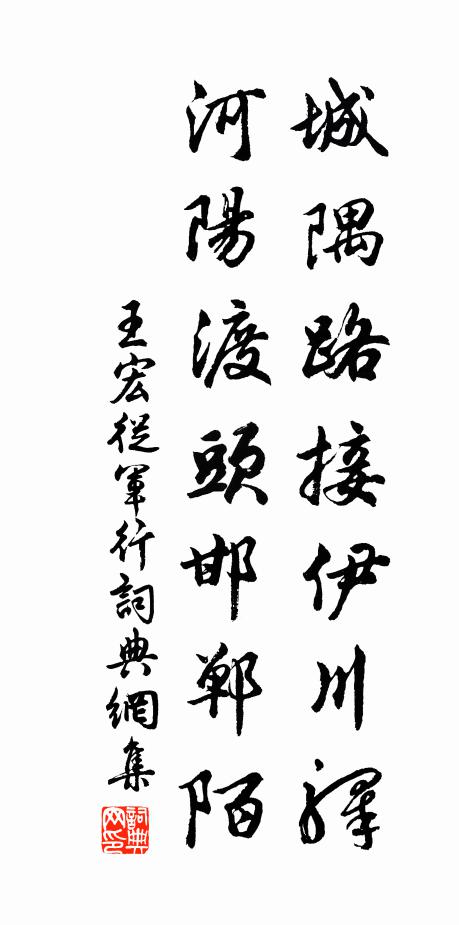 城隅路接伊川驛
河陽渡頭邯鄲陌
王宏從軍行詞典網集
詞典网印